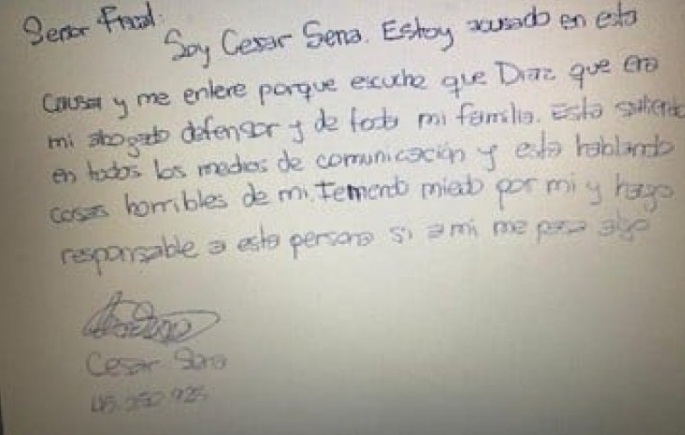 Señor Fiscal.
Soy Cesar Sena. Estoy acusado en esta
causa y me entere porque escuche que Diaz que era
mi abogado defensor y de toda mi familia. Esta saliendo
en todos los medios de comunicación y esta hablando
cosas horribles de mi. Temiendo miedo por mi y hago
responsable a esta persona si a mi me pasa algo
Cesar Sena